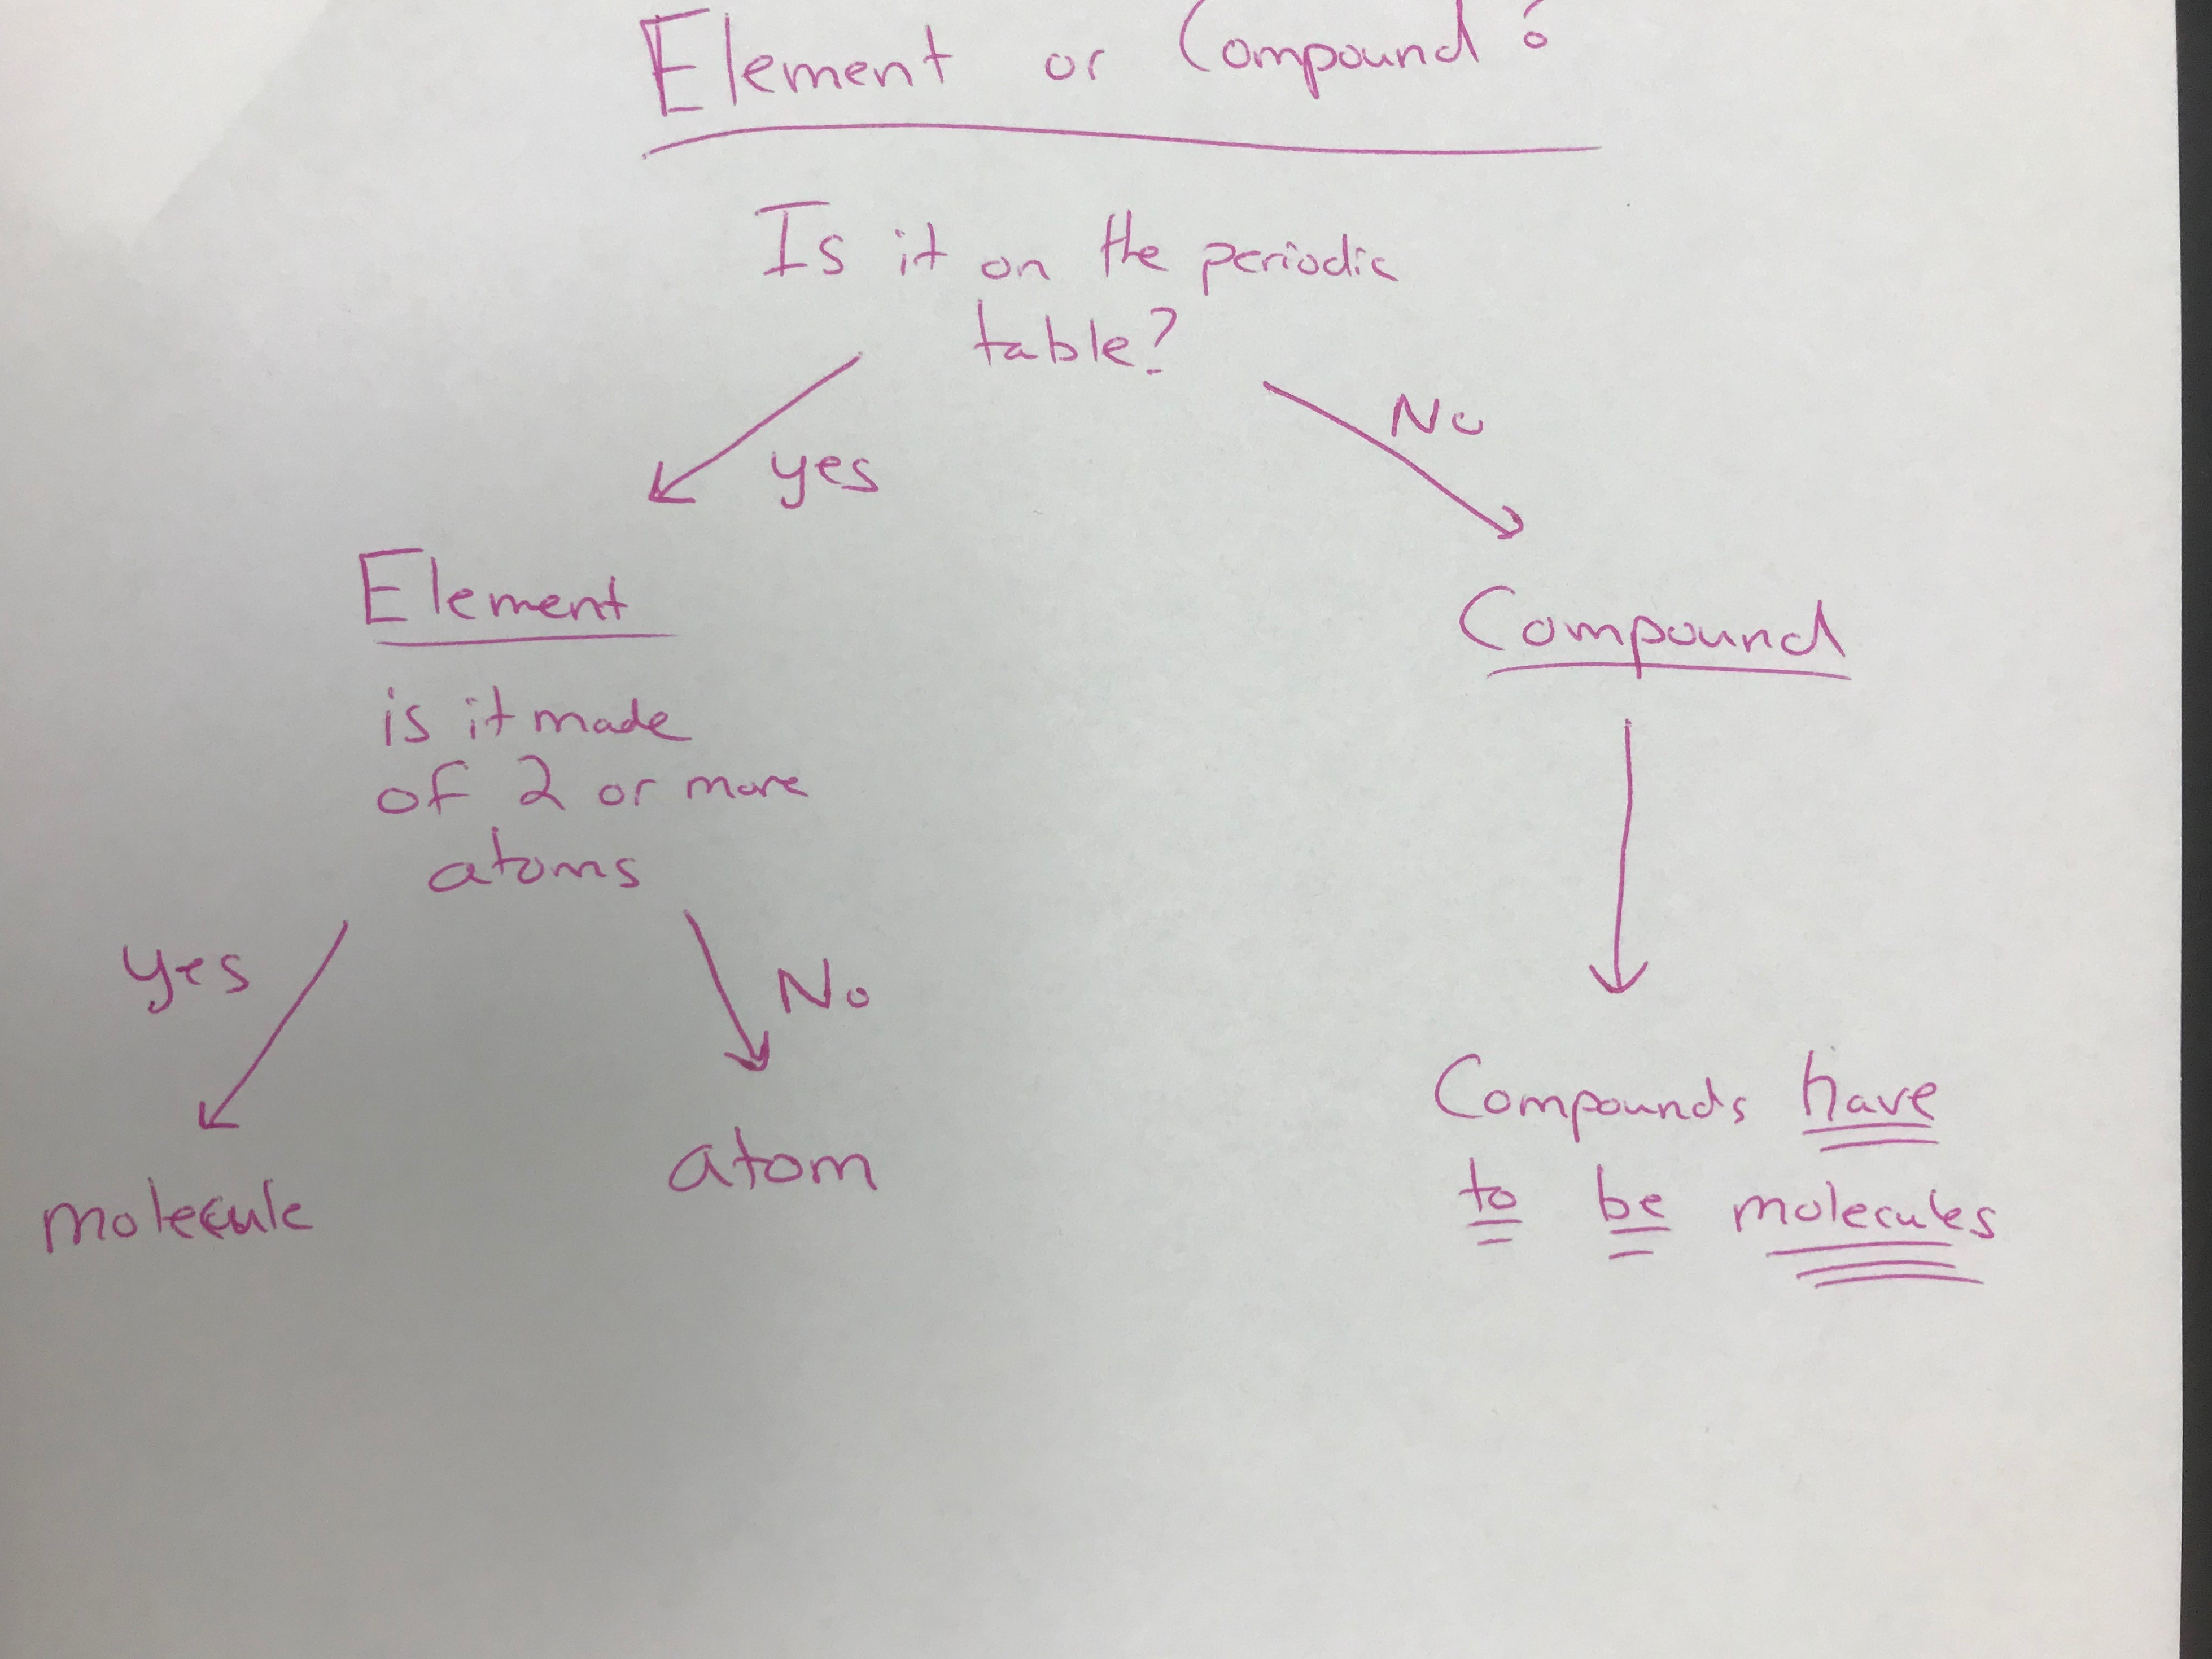 Element or Compound?
Is it on the periodic
table?
yes
No
Element
Compound
is it made
of 2 or more
atoms
yes
No
molecule
atom
Compounds have
to be molecules